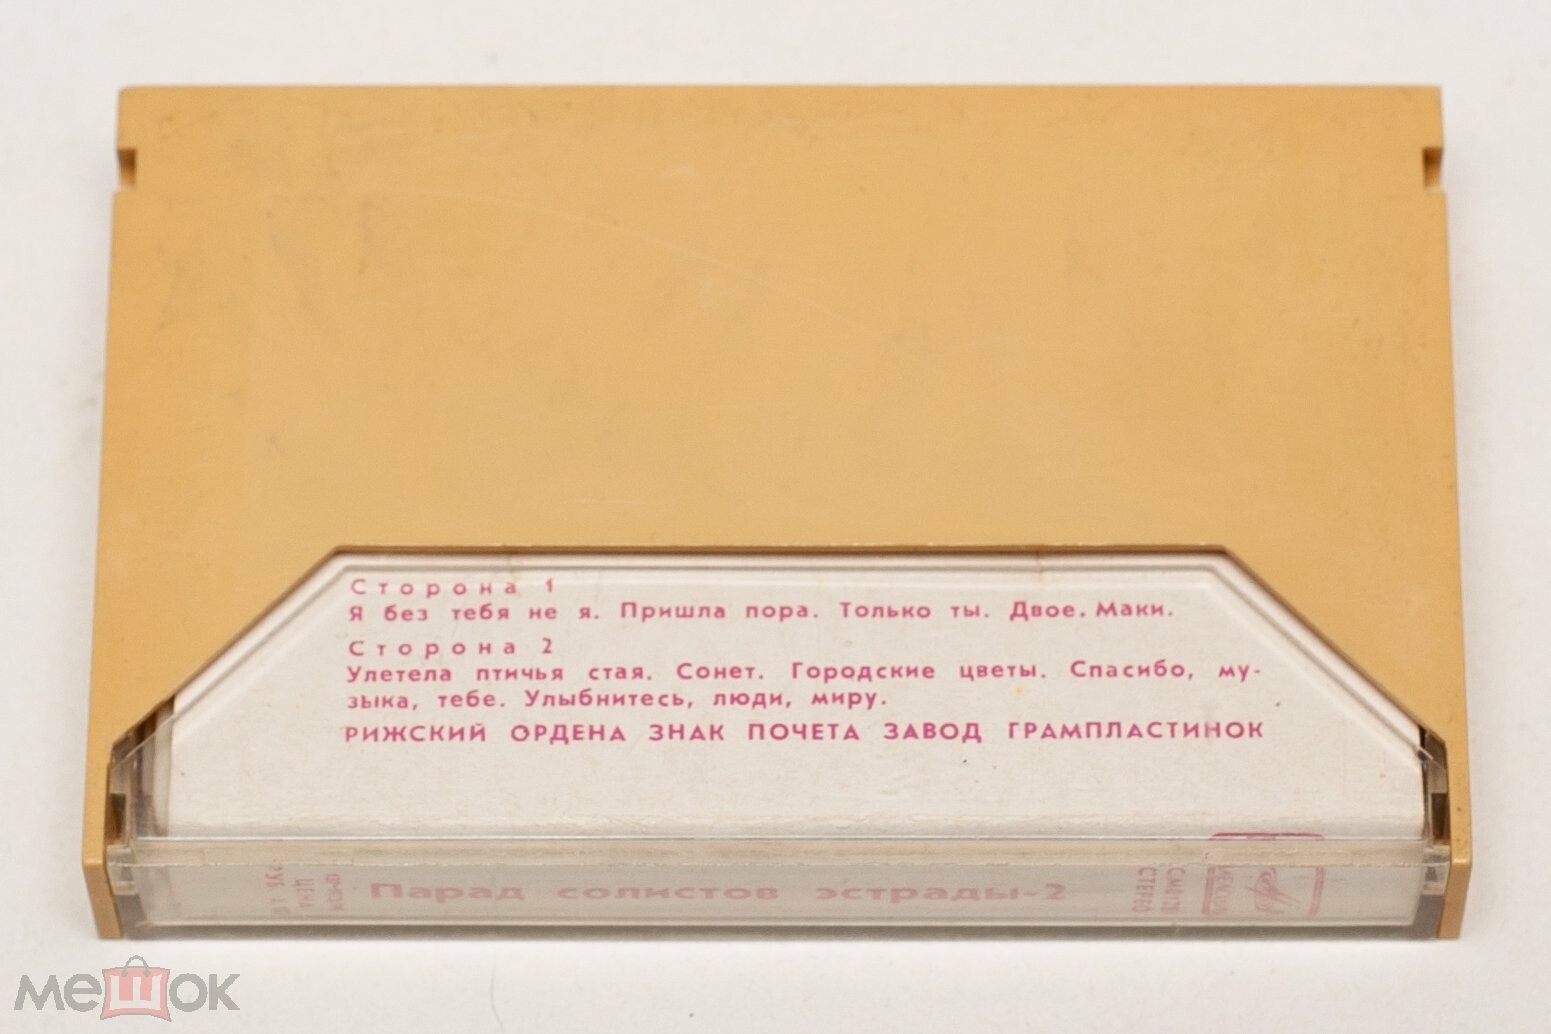 Сторона 1
Я без тебя не я. Пришла пора. Только ты. Двое. Маки.
Сторона 2
Улетела птичья стая. Сонет. Городские цветы. Спасибо, му-
зыка, тебе. Улыбнитесь, люди, миру.
РИЖСКИЙ ОРДЕНА ЗНАК ПОЧЕТА ЗАВОД ГРАМПЛАСТИНОК
ЦЕНА
РУБ
Парад солистов эстрады-2
СТЕРЕО
мешок